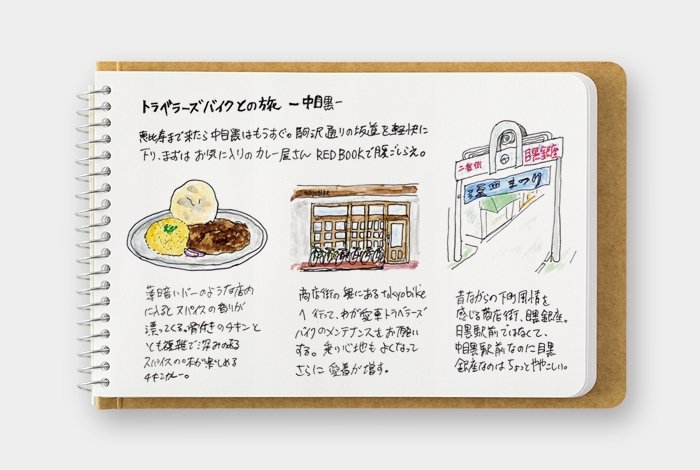 トラベラーズバイクとの旅 ー中目黒ー
恵比寿まで来たら中目黒はもうすぐ。駒沢通りの坂道を軽快に
下り、まずはお気に入りのカレー屋さん RED BOOKで腹ごしらえ。
tokyobike
二番街
目黒銀座
まつり
薄暗いバーのような店内
に入るとスパイスの香りが
漂ってくる。骨付きのチキンと
とも複雑で深みのある
スパイスの味が楽しめる
チキンカレー。
商店街の奥にあるtokyobike
へ行って、わが愛車トラベラーズ
バイクのメンテナンスもお願い
する。乗り心地もよくなって
さらに愛着が増す。
昔ながらの下町風情を
感じる商店街、目黒銀座。
目黒駅前ではなくて、
中目黒駅前なのに目黒
銀座なのはちょっとややこしい。